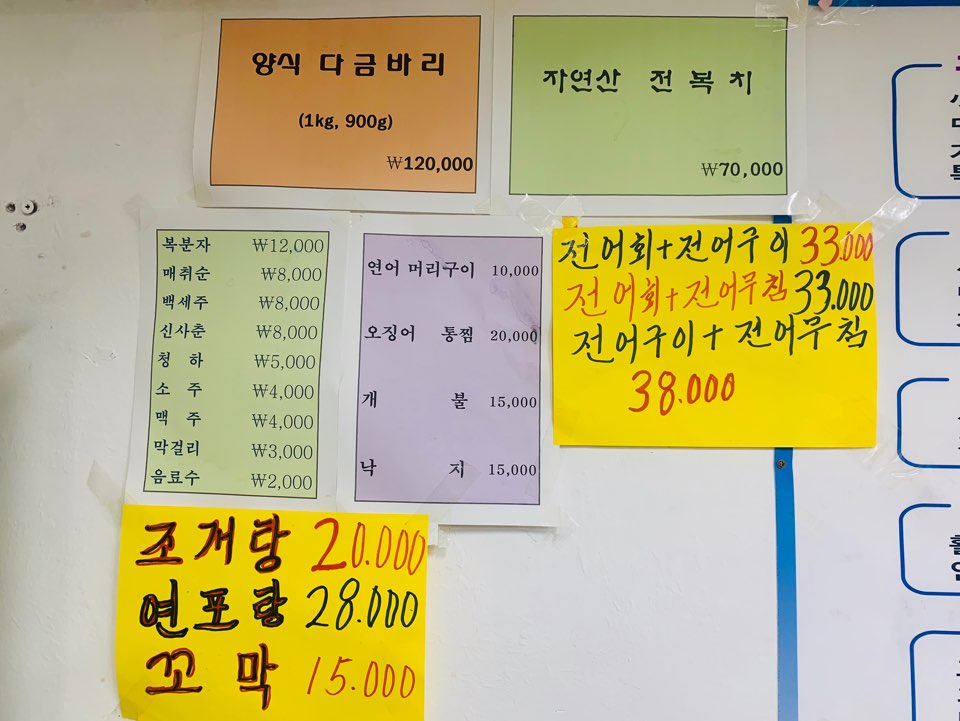 양식 다금바리
(1kg, 900g)
₩120,000
자연산 전복치
₩70,000
복분자 ₩12,000
매취순 ₩8,000
백세주 ₩8,000
신사춘 ₩8,000
청하 ₩5,000
소주 ₩4,000
맥주 ₩4,000
막걸리 ₩3,000
음료수 ₩2,000
연어 머리구이 10,000
오징어 통찜 20,000
개불 15,000
낙지 15,000
전어회+전어구이 33.000
전어회+전어무침 33.000
전어구이+전어무침
38.000
조개탕 20.000
연포탕 28.000
꼬막 15.000